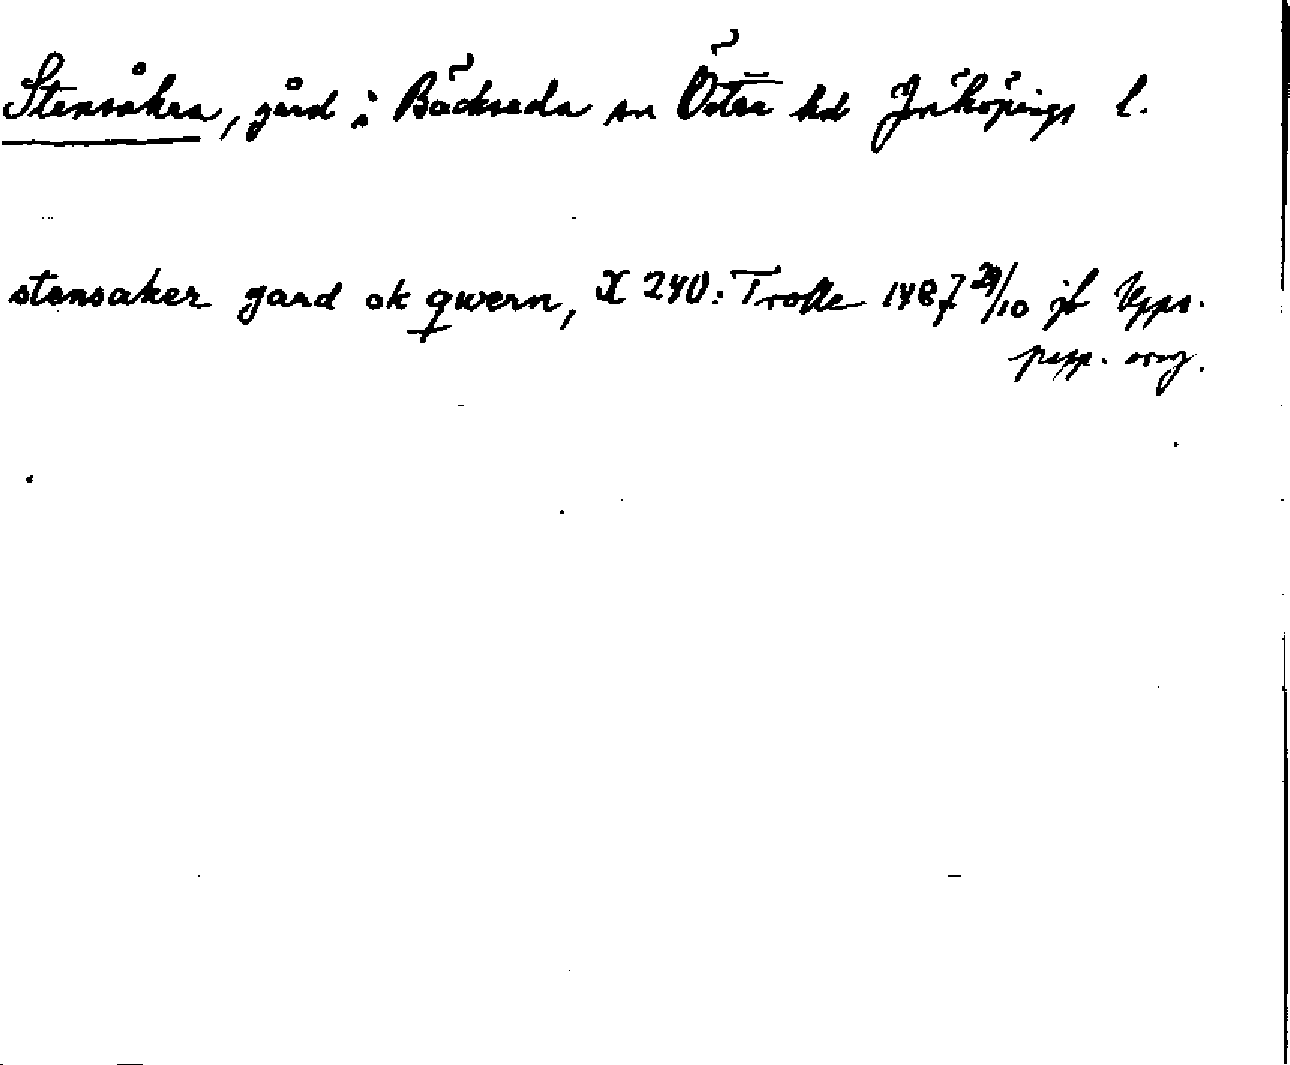 Stensåkra, gård i Bäckseda sn Östra hd Jnköpings l.
stensaker gard ok qwern, X 240: Trolle 1487 29/10 jb Upps.
papp. orig.